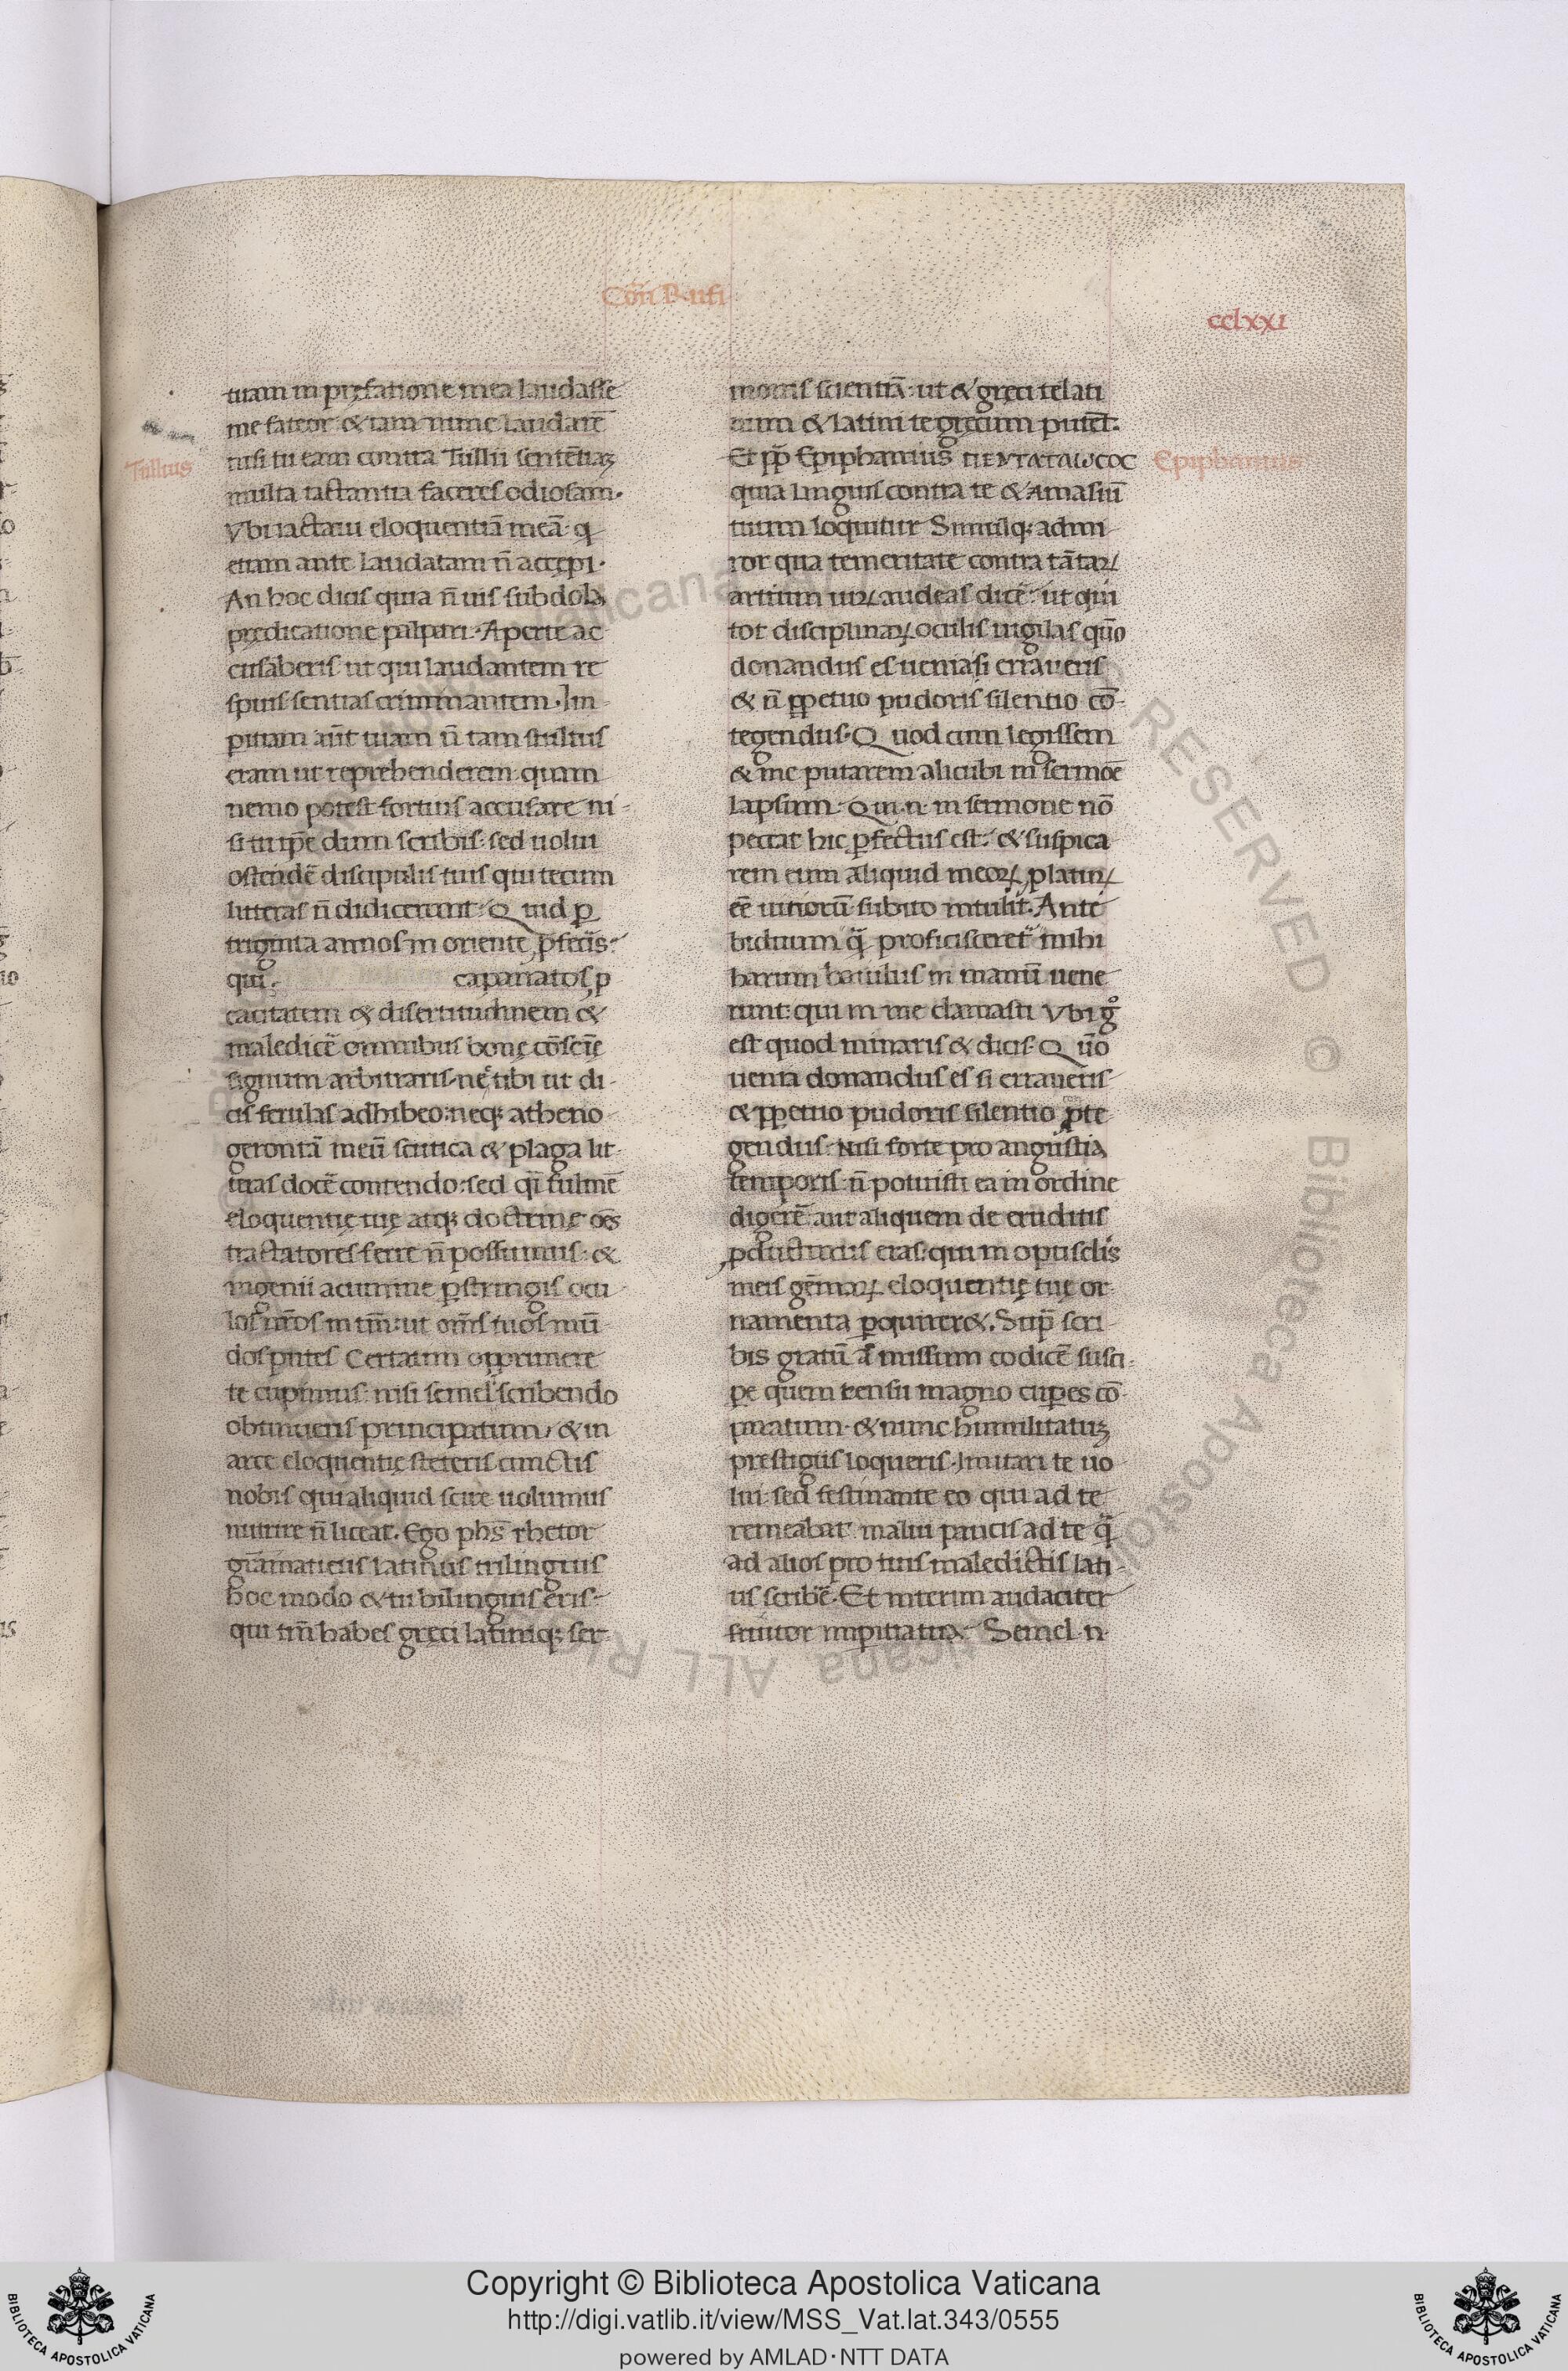 Cōn Rufi
cclxxi
tuam in pręfatione mea laudasse
me fateor & iam nunc laudarē
Tullius
nisi tu eam contra Tullii sentētiaꝫ
multa iactantia faceres odiosam.
Vbi iactaui eloquentiā meā: q
etiam ante laudatam n̄ accępi.
An hoc dicis quia n̄ uis subdola
prędicatione palpari. Aperte ac
cusaberis ut qui laudantem re
spuis sentias criminantem. Im
pitiam aūt tuam n̄ tam stultus
eram ut repręhenderem quam
nemo potest fortius accusare ni-
si tu ip̄e dum scribis: sed uolui
ostendē discipulis tuis qui tecum
litteras n̄ didicerunt. Quid ꝑ
triginta annos in oriente ꝓfeceris:
qui. capariatos, p
cacitatem & disertitudinem &
maledicē omnibus bonę cōsciē
signum arbitraris. nec̄ tibi ut di-
cis ferulas adhibeo: neqꝫ atheno
gerontā meū scutica & plaga lit-
teras docē contendo: sed q̄ fulmē
eloquentię tuę atqꝫ doctrinę oēs
tractatores ferre n̄ possumus: &
ingenii acumine ꝑstringis ocu
los nr̄os in tm̄: ut om̄s tuos inui
dos putes Certatim opprimere
te cupimus: nisi semel scribendo
obtinueris principatum, & in
arce eloquentię steteris cunctis
nobis qui aliquid scire uolumus
nutrire n̄ liceat. Ego phs̄ rhetor
grāmaticus latinus trilinguis
hoc modo & tu bilinguis eris:
qui tm̄ habes gręci latiniqꝫ ser
monis scientiā: ut & gręci te lati
num & latini te gręcum putēt.
Et pp̄ Epiphanius πεντατλωσσος
Epiphanius
quia linguis contra te & Amasiū
tuum loquitur Simulqꝫ admi
ror qua temeritate contra tātaꝝ
artium uiꝝ audeas dicē: ut qui
tot disciplinaꝝ oculis uigilas quō
donandus es uenia si erraueris
& n̄ ꝑpetuo pudoris silentio cō-
tegendus. Quod cum legissem
& me putarem alicubi in sermoē
lapsum. Qui .n. in sermone nō
peccat hic ꝑfectus est: & suspica
rem eum aliquid meoꝝ ꝓlatuꝝ
eē uitiorū subito intulit. Ante
biduum q̄ proficisceret mihi
harum baiulus in manū uene
runt: qui in me clamasti Vbi gͦ
est quod minaris & dicis Quō
uenia donandus es si erraueris
& ꝑpetuo pudoris silentio ꝓte
gendus. Nisi forte pro angustia
temporis n̄ potuisti ea in ordine
digerē: aut aliquem de eruditis
ꝓducturus eras: qui in opusclis
meis gēmaꝝ eloquentię tuę or
namenta ꝑquirer&. Sup̄ scri-
bis gratū a missum codicē susci-
pe quem censu magno cuperes cō
paratum & nunc humilitatuꝫ
prestigiis loqueris. Imitari te uo
lui: sed festinante eo qui ad te
remeabat malui paucis ad te q̄
ad alios pro tuis maledictis lati-
us scribē. Et interim audaciter
fruitor impitia tua. Semel .n.
Copyright © Biblioteca Apostolica Vaticana
http://digi.vatlib.it/view/MSS_Vat.lat.343/0555
powered by AMLAD·NTT DATA